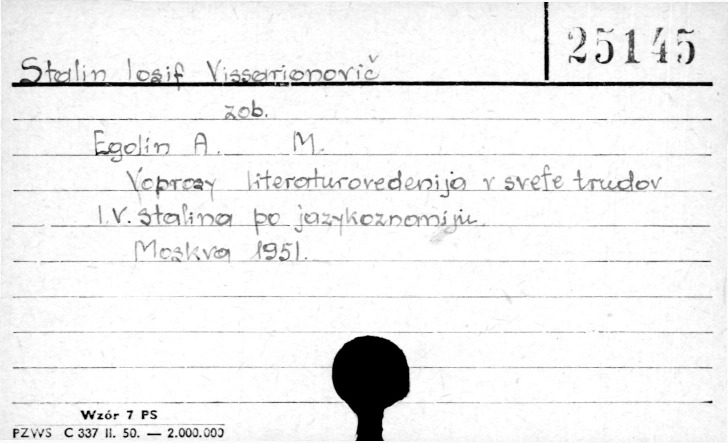 25145
Stalin Iosif Vissarionovič
zob.
Egolin A. M.
Voprosy literaturovedenija v svete trudov
I.V. Stalina po jazykoznaniju.
Moskva 1951.
Wzór 7 PS
PZWS C 337 II. 50. — 2.000.000